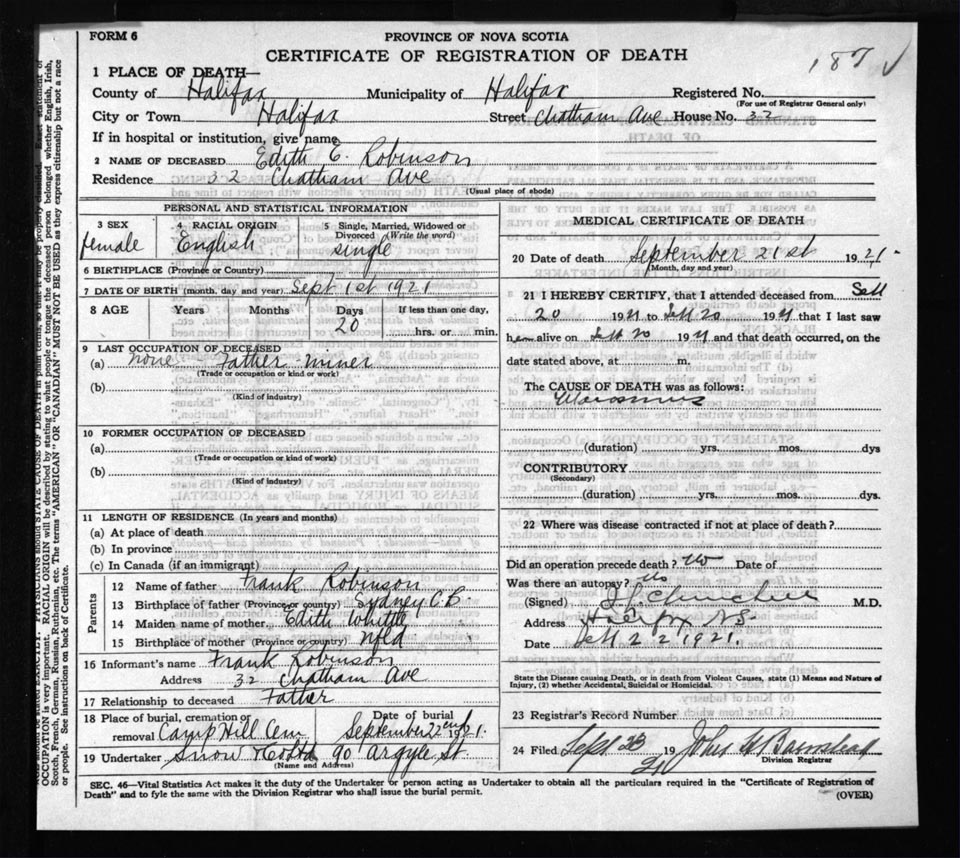 FORM 6
PROVINCE OF NOVA SCOTIA
CERTIFICATE OF REGISTRATION OF DEATH
187 ✓
1 PLACE OF DEATH—
County of Halifax Municipality of Halifax Registered No.
(For use of Registrar General only)
City or Town Halifax Street Chatham Ave House No. 32
If in hospital or institution, give name
2 NAME OF DECEASED Edith E. Robinson
Residence 32 Chatham Ave
(Usual place of abode)
PERSONAL AND STATISTICAL INFORMATION
3 SEX female
4 RACIAL ORIGIN English
5 Single, Married, Widowed or Divorced (Write the word) single
6 BIRTHPLACE (Province or Country)
7 DATE OF BIRTH (month, day and year) Sept 1st 1921
8 AGE Years Months Days 20 If less than one day, hrs. or min.
9 LAST OCCUPATION OF DECEASED
(a) none Father miner
(Trade or occupation or kind or work)
(b)
(Kind of industry)
10 FORMER OCCUPATION OF DECEASED
(a)
(Trade or occupation or kind or work)
(b)
(Kind of industry)
11 LENGTH OF RESIDENCE (In years and months)
(a) At place of death
(b) In province
(c) In Canada (if an immigrant)
Parents
12 Name of father Frank Robinson
13 Birthplace of father (Province or country) Sydney C.B.
14 Maiden name of mother Edith Whittle
15 Birthplace of mother (Province or country) Nfld
16 Informant's name Frank Robinson
Address 32 Chatham Ave
17 Relationship to deceased Father
18 Place of burial, cremation or removal Camp Hill Cem Date of burial September 22nd 1921.
19 Undertaker Snow 90 Argyle St.
(Name and Address)
MEDICAL CERTIFICATE OF DEATH
20 Date of death September 21st 1921.
(Month, day and year)
21 I HEREBY CERTIFY, that I attended deceased from Sept
20 1921 to Sept 20 1921 that I last saw
h alive on Sept 20 1921 and that death occurred, on the
date stated above, at m.
The CAUSE OF DEATH was as follows:
Marasmus
(duration) yrs. mos. dys
CONTRIBUTORY
(Secondary)
(duration) yrs. mos. dys.
22 Where was disease contracted if not at place of death?
Did an operation precede death? No Date of
Was there an autopsy? No
(Signed) M.D.
Address Halifax N.S.
Date Sept 22 1921.
State the Disease causing Death, or in death from Violent Causes, state (1) Means and Nature of
Injury, (2) whether Accidental, Suicidal or Homicidal.
23 Registrar's Record Number
24 Filed Sept 23 1921 John W Barnstead
Division Registrar
SEC. 46—Vital Statistics Act makes it the duty of the Undertaker or person acting as Undertaker to obtain all the particulars required in the "Certificate of Registration of
Death" and to fyle the same with the Division Registrar who shall issue the burial permit.
(OVER)
OCCUPATION is very important. RACIAL ORIGIN will be described by stating to what people or tongue the deceased person belonged whether English, Irish,
Scotch, French, German, Russian, Ruthenian, etc. The terms "AMERICAN" OR "CANADIAN" MUST NOT BE USED as they express citizenship but not a race
or people. See instructions on back of Certificate.